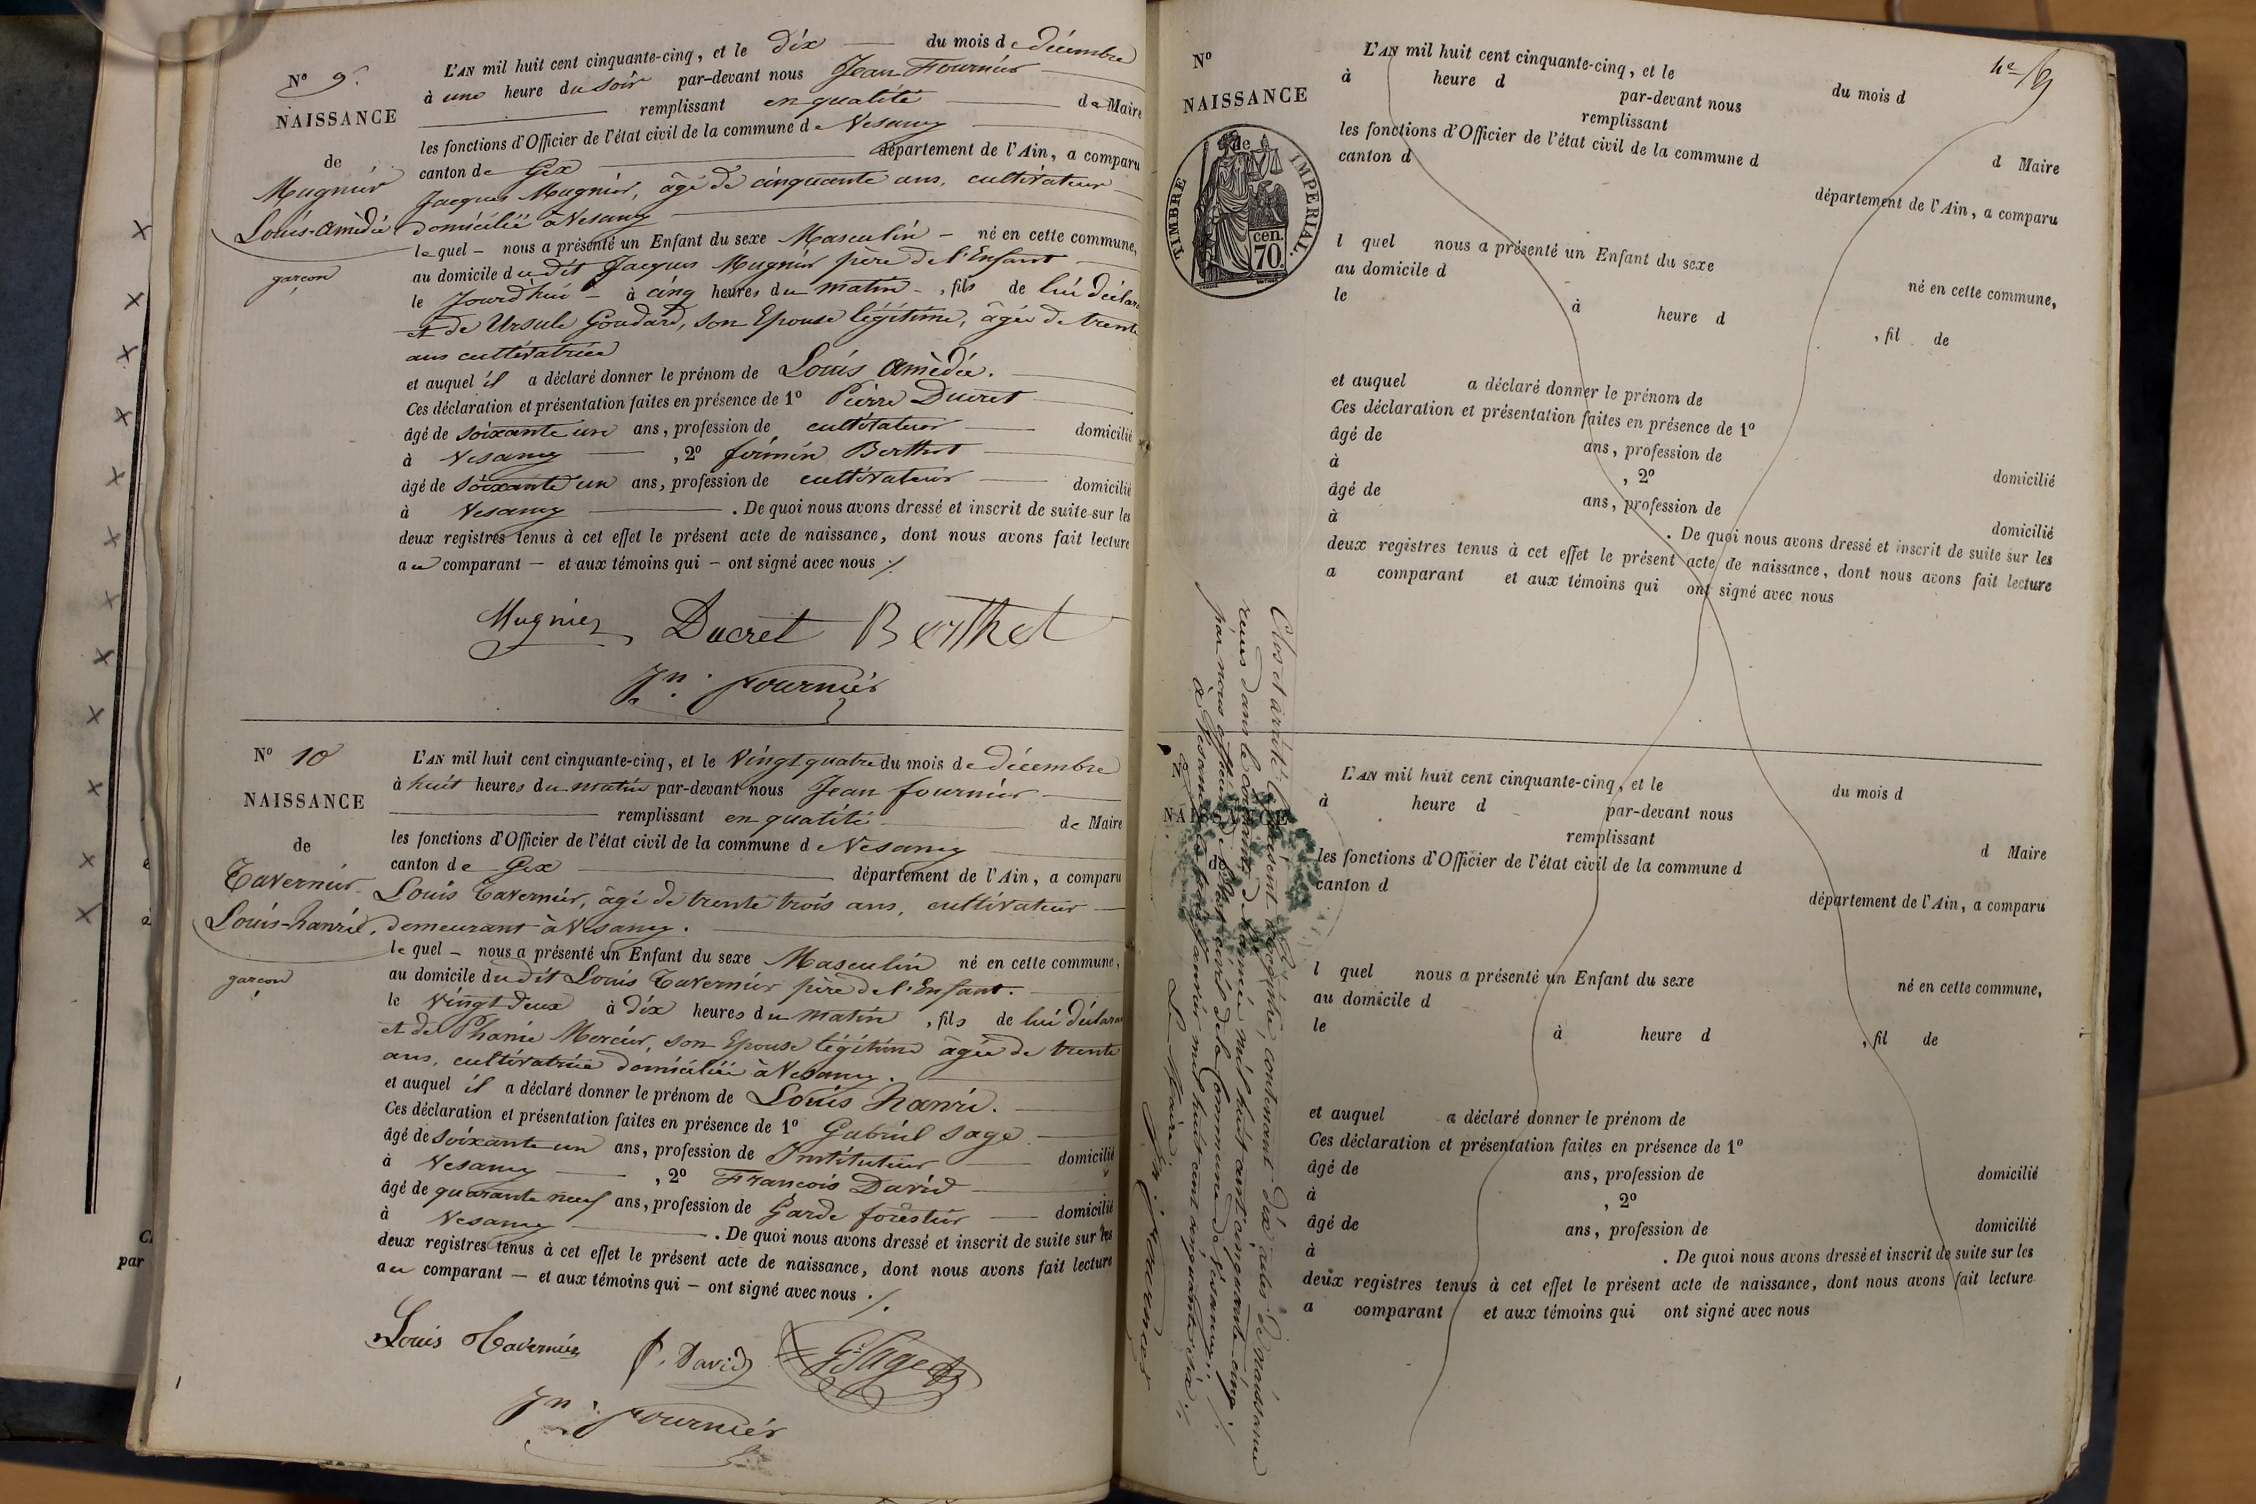 N° 9.
NAISSANCE
de
Mugnier
Louis-Amèdée
garçon
L'AN mil huit cent cinquante-cinq, et le dix du mois de décembre
à une heure du soir par-devant nous Jean Fournier
remplissant en qualité de Maire
les fonctions d'Officier de l'état civil de la commune de Vesancy
canton de Gex département de l'Ain, a comparu
Jacques Mugnier, âgé de cinquante ans, cultivateur
domicilié à Vesancy
lequel – nous a présenté un Enfant du sexe Masculin – né en cette commune,
au domicile du dit Jacques Mugnier père de l'Enfant
le jourd'hui – à cinq heures du matin –, fils de lui déclarant
et de Ursule Goudard, son Epouse légitime, âgée de trente
ans cultivatrice
et auquel il a déclaré donner le prénom de Louis Amèdée.
Ces déclaration et présentation faites en présence de 1° Pierre Ducret
âgé de soixante un ans, profession de cultivateur domicilié
à Vesancy , 2° firmin Berthet
âgé de soixante un ans, profession de cultivateur domicilié
à Vesancy . De quoi nous avons dressé et inscrit de suite sur les
deux registres tenus à cet effet le présent acte de naissance, dont nous avons fait lecture
au comparant – et aux témoins qui – ont signé avec nous ./.
Mugnier Ducret Berthet
Jn. Fournier
N° 10
NAISSANCE
de
Tavernier
Louis-hanrie.
garçon
L'AN mil huit cent cinquante-cinq, et le Vingt quatre du mois de décembre
à huit heures du matin par-devant nous Jean fournier
remplissant en qualité de Maire
les fonctions d'Officier de l'état civil de la commune de Vesancy
canton de Gex département de l'Ain, a comparu
Louis Tavernier, âgé de trente trois ans, cultivateur
demeurant à Vesancy.
lequel – nous a présenté un Enfant du sexe Masculin né en cette commune,
au domicile du dit Louis Tavernier père de l'Enfant.
le vingt deux à dix heures du matin , fils de lui déclarant
et de Phanie Mercier, son Epouse légitime âgée de trente
ans, cultivatrice domiciliée à Vesancy.
et auquel il a déclaré donner le prénom de Louis hanri.
Ces déclaration et présentation faites en présence de 1° Gabriel Sage
âgé de soixante un ans, profession de Instituteur domicilié
à Vesancy , 2° Francois David
âgé de quarante neuf ans, profession de Garde forestier domicilié
à Vesancy . De quoi nous avons dressé et inscrit de suite sur les
deux registres tenus à cet effet le présent acte de naissance, dont nous avons fait lecture
au comparant – et aux témoins qui – ont signé avec nous ./.
Louis Tavernier f. David G. Sage
Jn. Fournier
N°
NAISSANCE
de
TIMBRE IMPERIAL.
70. cen.
L'AN mil huit cent cinquante-cinq, et le du mois d
à heure d par-devant nous
remplissant d Maire
les fonctions d'Officier de l'état civil de la commune d
canton d département de l'Ain, a comparu
l quel nous a présenté un Enfant du sexe né en cette commune,
au domicile d
le à heure d , fil de
et auquel a déclaré donner le prénom de
Ces déclaration et présentation faites en présence de 1°
âgé de ans, profession de domicilié
à , 2°
âgé de ans, profession de domicilié
à . De quoi nous avons dressé et inscrit de suite sur les
deux registres tenus à cet effet le présent acte de naissance, dont nous avons fait lecture
a comparant et aux témoins qui ont signé avec nous
Clos et arrêté le présent registre, contenant dix actes de naissance
reçus dans le courant de l'année mil huit cent cinquante-cinq,
par nous officier de l'état civil de la Commune de Vesancy,
à Vesancy le janvier mil huit cent cinquante six ./.
Le Maire,
Jn. Fournier
N°
NAISSANCE
de
L'AN mil huit cent cinquante-cinq, et le du mois d
à heure d par-devant nous
remplissant d Maire
les fonctions d'Officier de l'état civil de la commune d
canton d département de l'Ain, a comparu
l quel nous a présenté un Enfant du sexe né en cette commune,
au domicile d
le à heure d , fil de
et auquel a déclaré donner le prénom de
Ces déclaration et présentation faites en présence de 1°
âgé de ans, profession de domicilié
à , 2°
âgé de ans, profession de domicilié
à . De quoi nous avons dressé et inscrit de suite sur les
deux registres tenus à cet effet le présent acte de naissance, dont nous avons fait lecture
a comparant et aux témoins qui ont signé avec nous